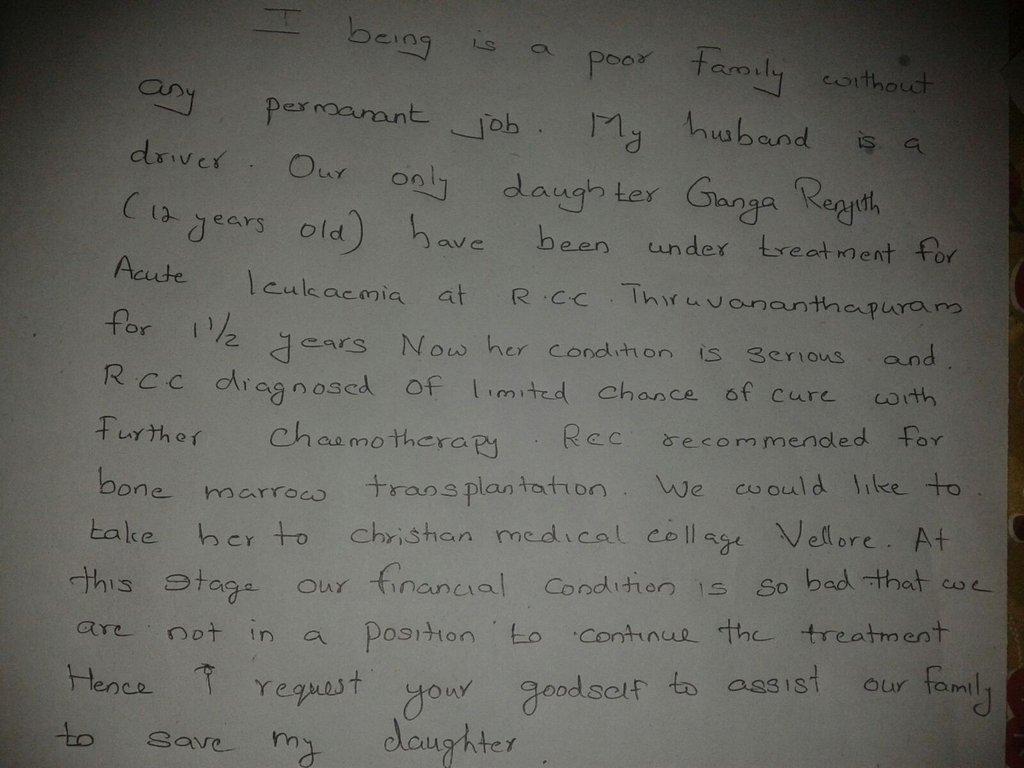 I being is a poor Family without
any permanant job. My husband is a
driver. Our only daughter Ganga Renjith
(12 years old) have been under treatment for
Acute leukaemia at R.C.C. Thiruvananthapuram
for 1 1/2 years Now her condition is serious and.
R.C.C diagnosed of limited chance of cure with
further chaemotherapy. Rcc recommended for
bone marrow transplantation. We would like to
take her to christian medical collage Vellore. At
this stage our financial condition is so bad that we
are not in a position to continue the treatment
Hence I request your goodself to assist our family
to save my daughter.